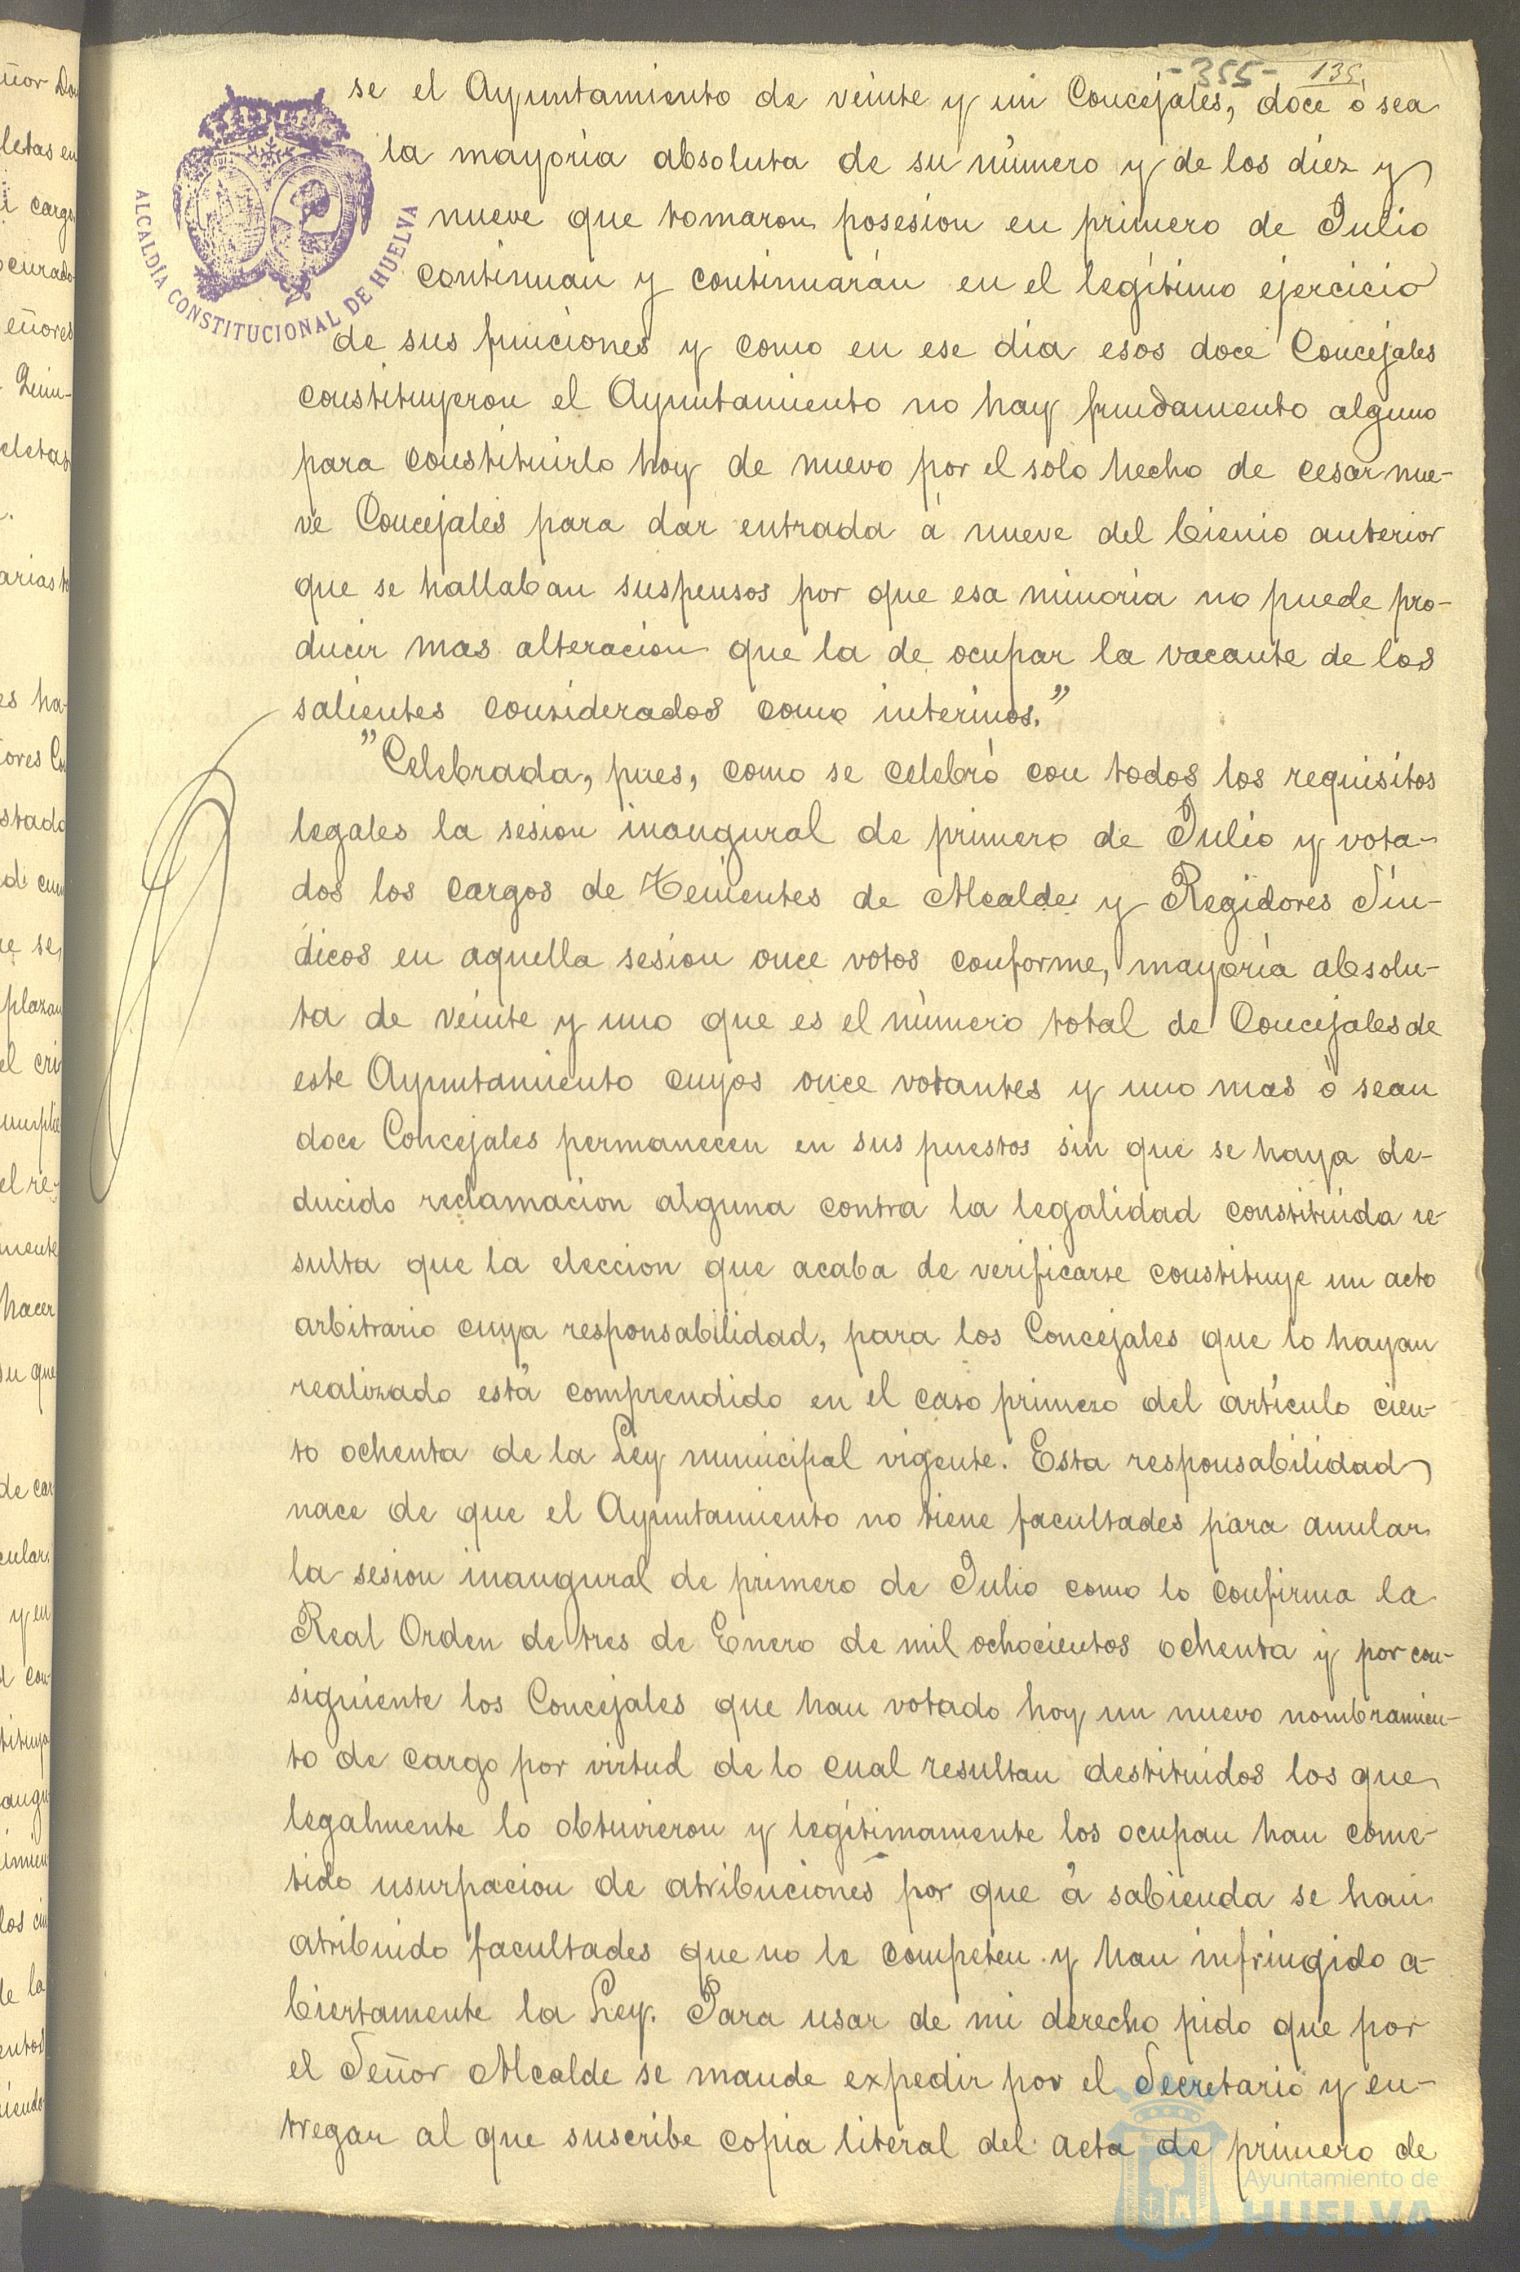 -355- 135.
se el Ayuntamiento de veinte y un Concejales, doce ó sea
la mayoría absoluta de su número y de los diez y
nueve que tomaron posesion en primero de Julio
continuan y continuarán en el legítimo ejercicio
de sus funciones y como en ese dia esos doce Concejales
constituyeron el Ayuntamiento no hay fundamento alguno
para constituirlo hoy de nuevo por el solo hecho de cesar nue-
ve Concejales para dar entrada á nueve del bienio anterior
que se hallaban suspensos por que esa minoría no puede pro-
ducir mas alteracion que la de ocupar la vacante de los
salientes considerados como interinos."
"Celebrada, pues, como se celebró con todos los requisitos
legales la sesion inaugural de primero de Julio y vota-
dos los cargos de Tenientes de Alcalde y Regidores Sín-
dicos en aquella sesion once votos conforme, mayoría absolu-
ta de veinte y uno que es el número total de Concejales de
este Ayuntamiento cuyos once votantes y uno mas ó sean
doce Concejales permanecen en sus puestos sin que se haya de-
ducido reclamacion alguna contra la legalidad constituida re-
sulta que la eleccion que acaba de verificarse constituye un acto
arbitrario cuya responsabilidad, para los Concejales que lo hayan
realizado está comprendido en el caso primero del artículo cien-
to ochenta de la Ley municipal vigente. Esta responsabilidad
nace de que el Ayuntamiento no tiene facultades para anular
la sesion inaugural de primero de Julio como lo confirma la
Real Orden de tres de Enero de mil ochocientos ochenta y por con-
siguiente los Concejales que han votado hoy un nuevo nombramien-
to de cargo por virtud de lo cual resultan destituidos los que
legalmente lo obtuvieron y legítimamente los ocupan han come-
tido usurpacion de atribuciones por que á sabienda se han
atribuido facultades que no le competen y han infringido a-
biertamente la Ley. Para usar de mi derecho pido que por
el Señor Alcalde se mande expedir por el Secretario y en-
tregar al que suscribe copia literal del acta de primero de
ALCALDÍA CONSTITUCIONAL DE HUELVA
Ayuntamiento de
HUELVA